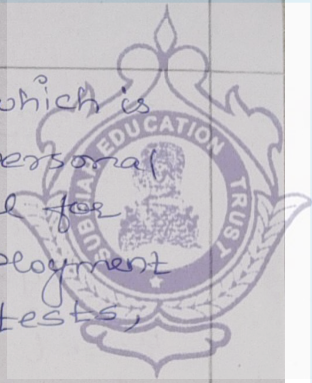 which is
personal
for
ployment
tests,
EDUCATION TRUST